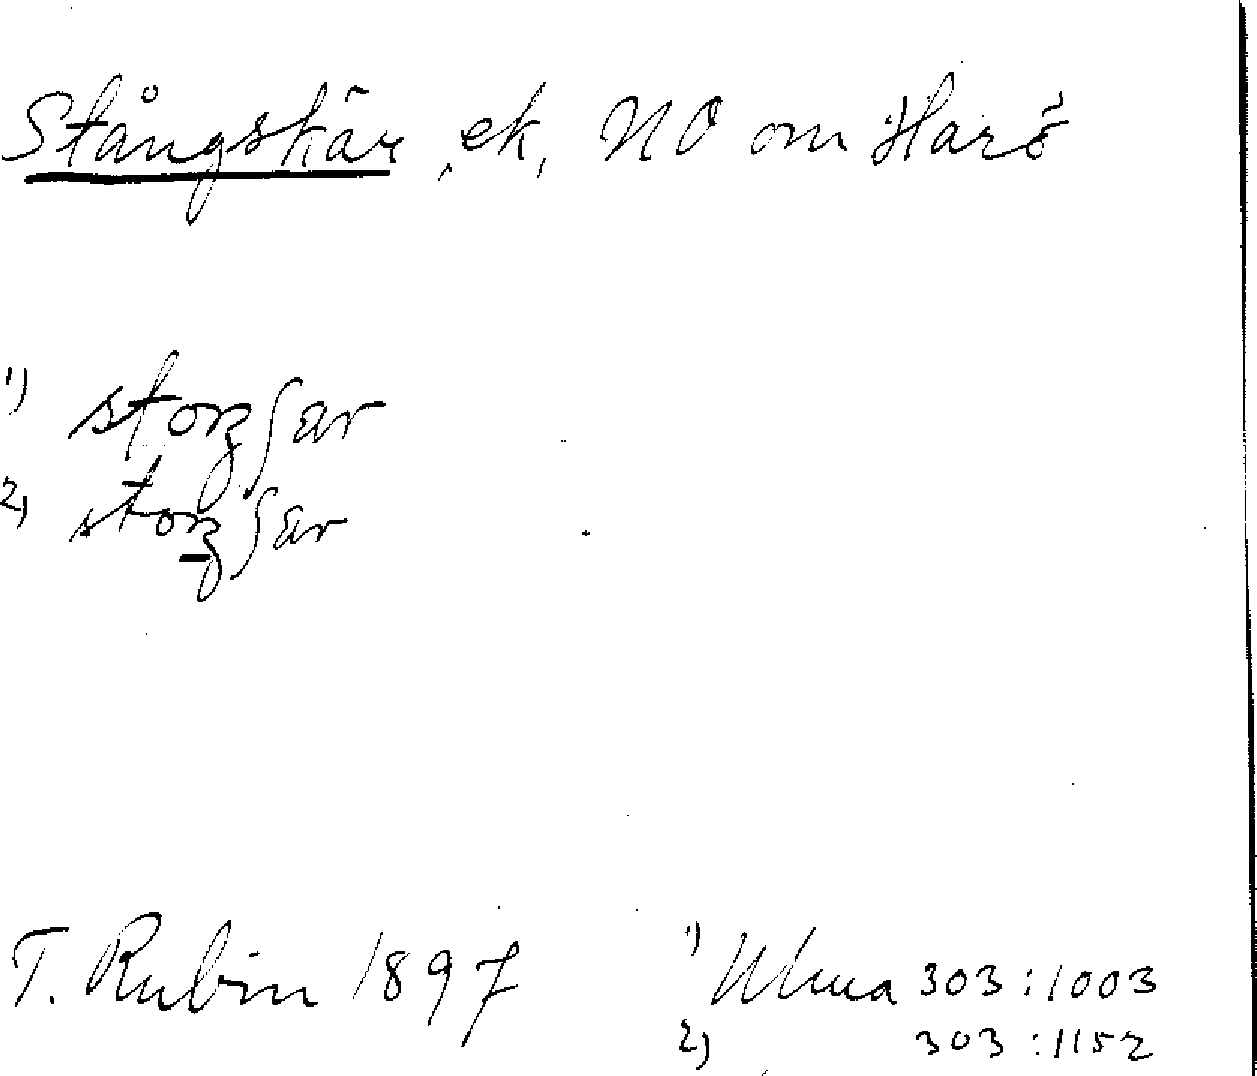 Stångskär, ek, NO om Harö
1) stoŋʃär
2) stoŋʃär
T. Rubin 1897
1) Uhua 303:1003
2) 303:1152